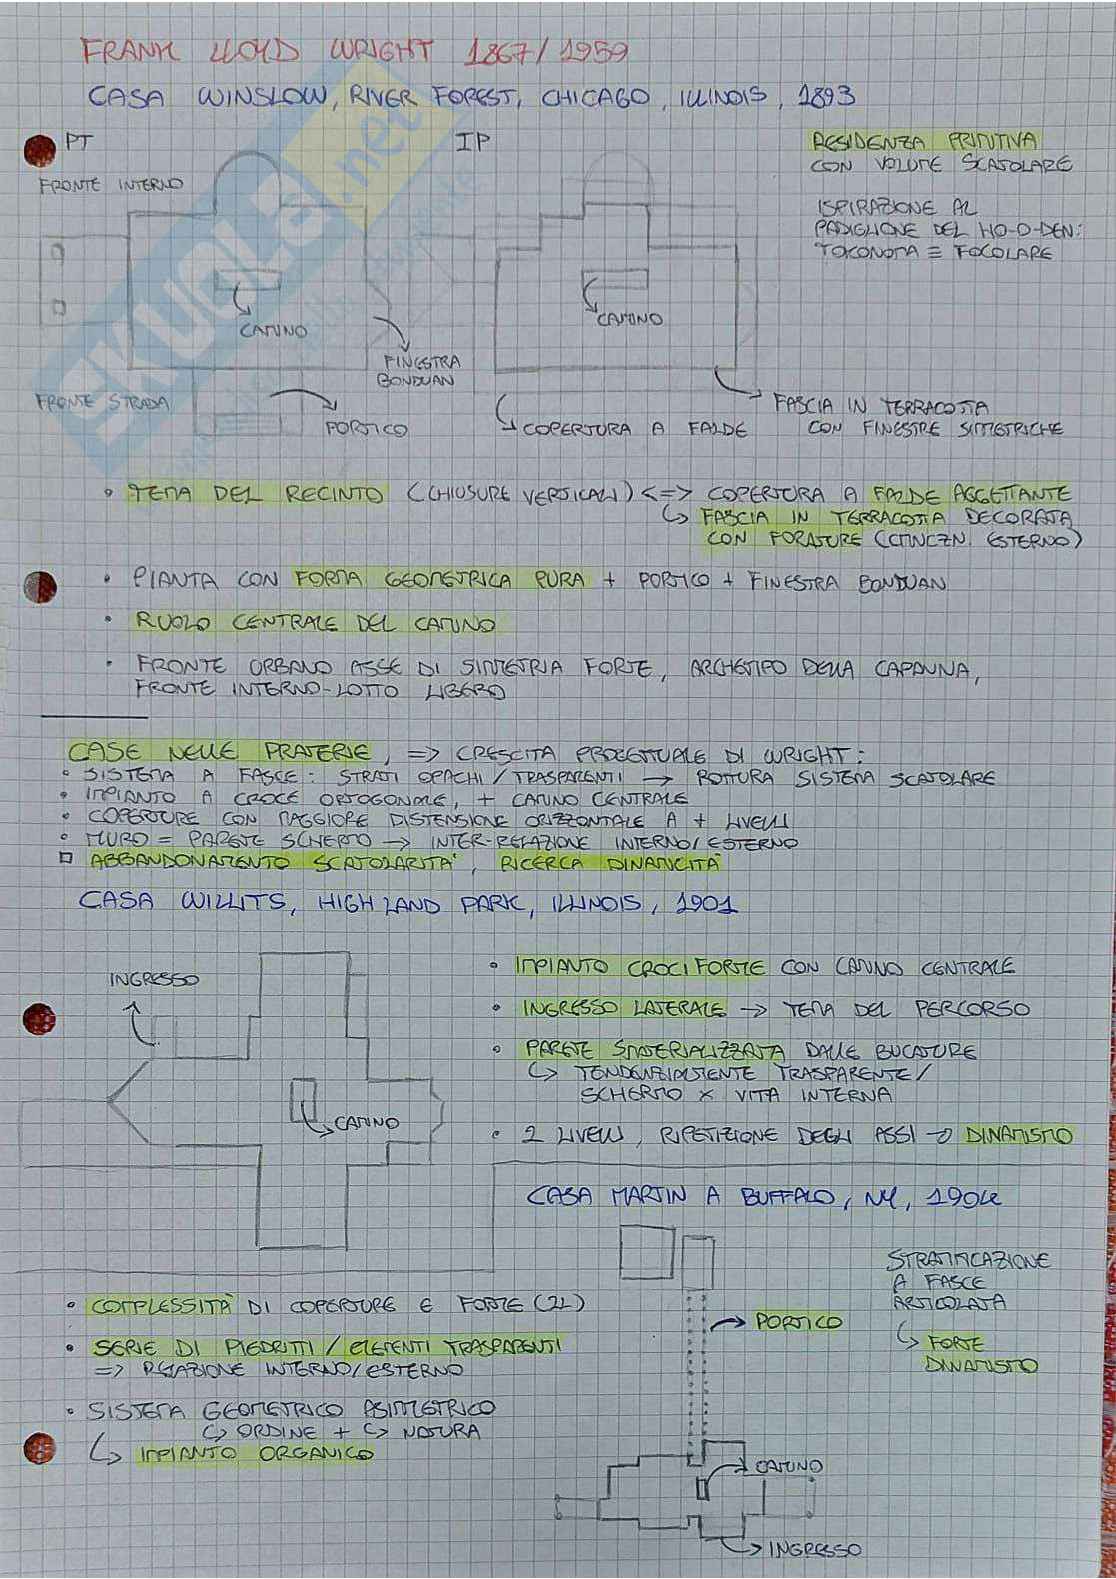 FRANK LLOYD WRIGHT 1867/1959
CASA WINSLOW, RIVER FOREST, CHICAGO, ILLINOIS, 1893
PT
IP
FRONTE INTERNO
CAMINO
FINESTRA
BONDUAN
FRONTE STRADA
PORTICO
CAMINO
COPERTURA A FALDE
FASCIA IN TERRACOTTA
CON FINESTRE SIMMETRICHE
RESIDENZA PRIMITIVA
CON VOLUME SCATOLARE
ISPIRAZIONE AL
PADIGLIONE DEL HO-O-DEN:
TOKONOMA ≡ FOCOLARE
• TEMA DEL RECINTO (CHIUSURE VERTICALI) <=> COPERTURA A FALDE AGGETTANTE
↳ FASCIA IN TERRACOTTA DECORATA
CON FORATURE (ESTERNO)
• PIANTA CON FORMA GEOMETRICA PURA + PORTICO + FINESTRA BONDUAN
• RUOLO CENTRALE DEL CAMINO
• FRONTE URBANO ASSE DI SIMMETRIA FORTE, ARCHETIPO DELLA CAPANNA,
FRONTE INTERNO-LOTTO LIBERO
CASE NELLE PRATERIE, => CRESCITA PROGETTUALE DI WRIGHT:
• SISTEMA A FASCE: STRATI OPACHI/TRASPARENTI → ROTTURA SISTEMA SCATOLARE
• IMPIANTO A CROCE ORTOGONALE, + CAMINO CENTRALE
• COPERTURE CON MAGGIORE DISTENSIONE ORIZZONTALE A + LIVELLI
• MURO = PARETE SCHERMO → INTER-RELAZIONE INTERNO/ESTERNO
□ ABBANDONAMENTO SCATOLARITÀ, RICERCA DINAMICITÀ
CASA WILLITS, HIGHLAND PARK, ILLINOIS, 1901
INGRESSO
CAMINO
• IMPIANTO CROCIFORME CON CAMINO CENTRALE
• INGRESSO LATERALE → TEMA DEL PERCORSO
• PARETE SMATERIALIZZATA DALLE BUCATURE
↳ TENDENZIALMENTE TRASPARENTE/
SCHERMO X VITA INTERNA
• 2 LIVELLI, RIPETIZIONE DEGLI ASSI → DINAMISMO
CASA MARTIN A BUFFALO, NY, 1904
• COMPLESSITÀ DI COPERTURE E FORME (2L)
• SERIE DI PIEDRITTI/ELEMENTI TRASPARENTI
=> RELAZIONE INTERNO/ESTERNO
• SISTEMA GEOMETRICO ASIMMETRICO
↳ ORDINE + ↳ NATURA
↳ IMPIANTO ORGANICO
PORTICO
STRATIFICAZIONE
A FASCE
ARTICOLATA
↳ FORTE
DINAMISMO
CAMINO
INGRESSO
SKUOLA.net